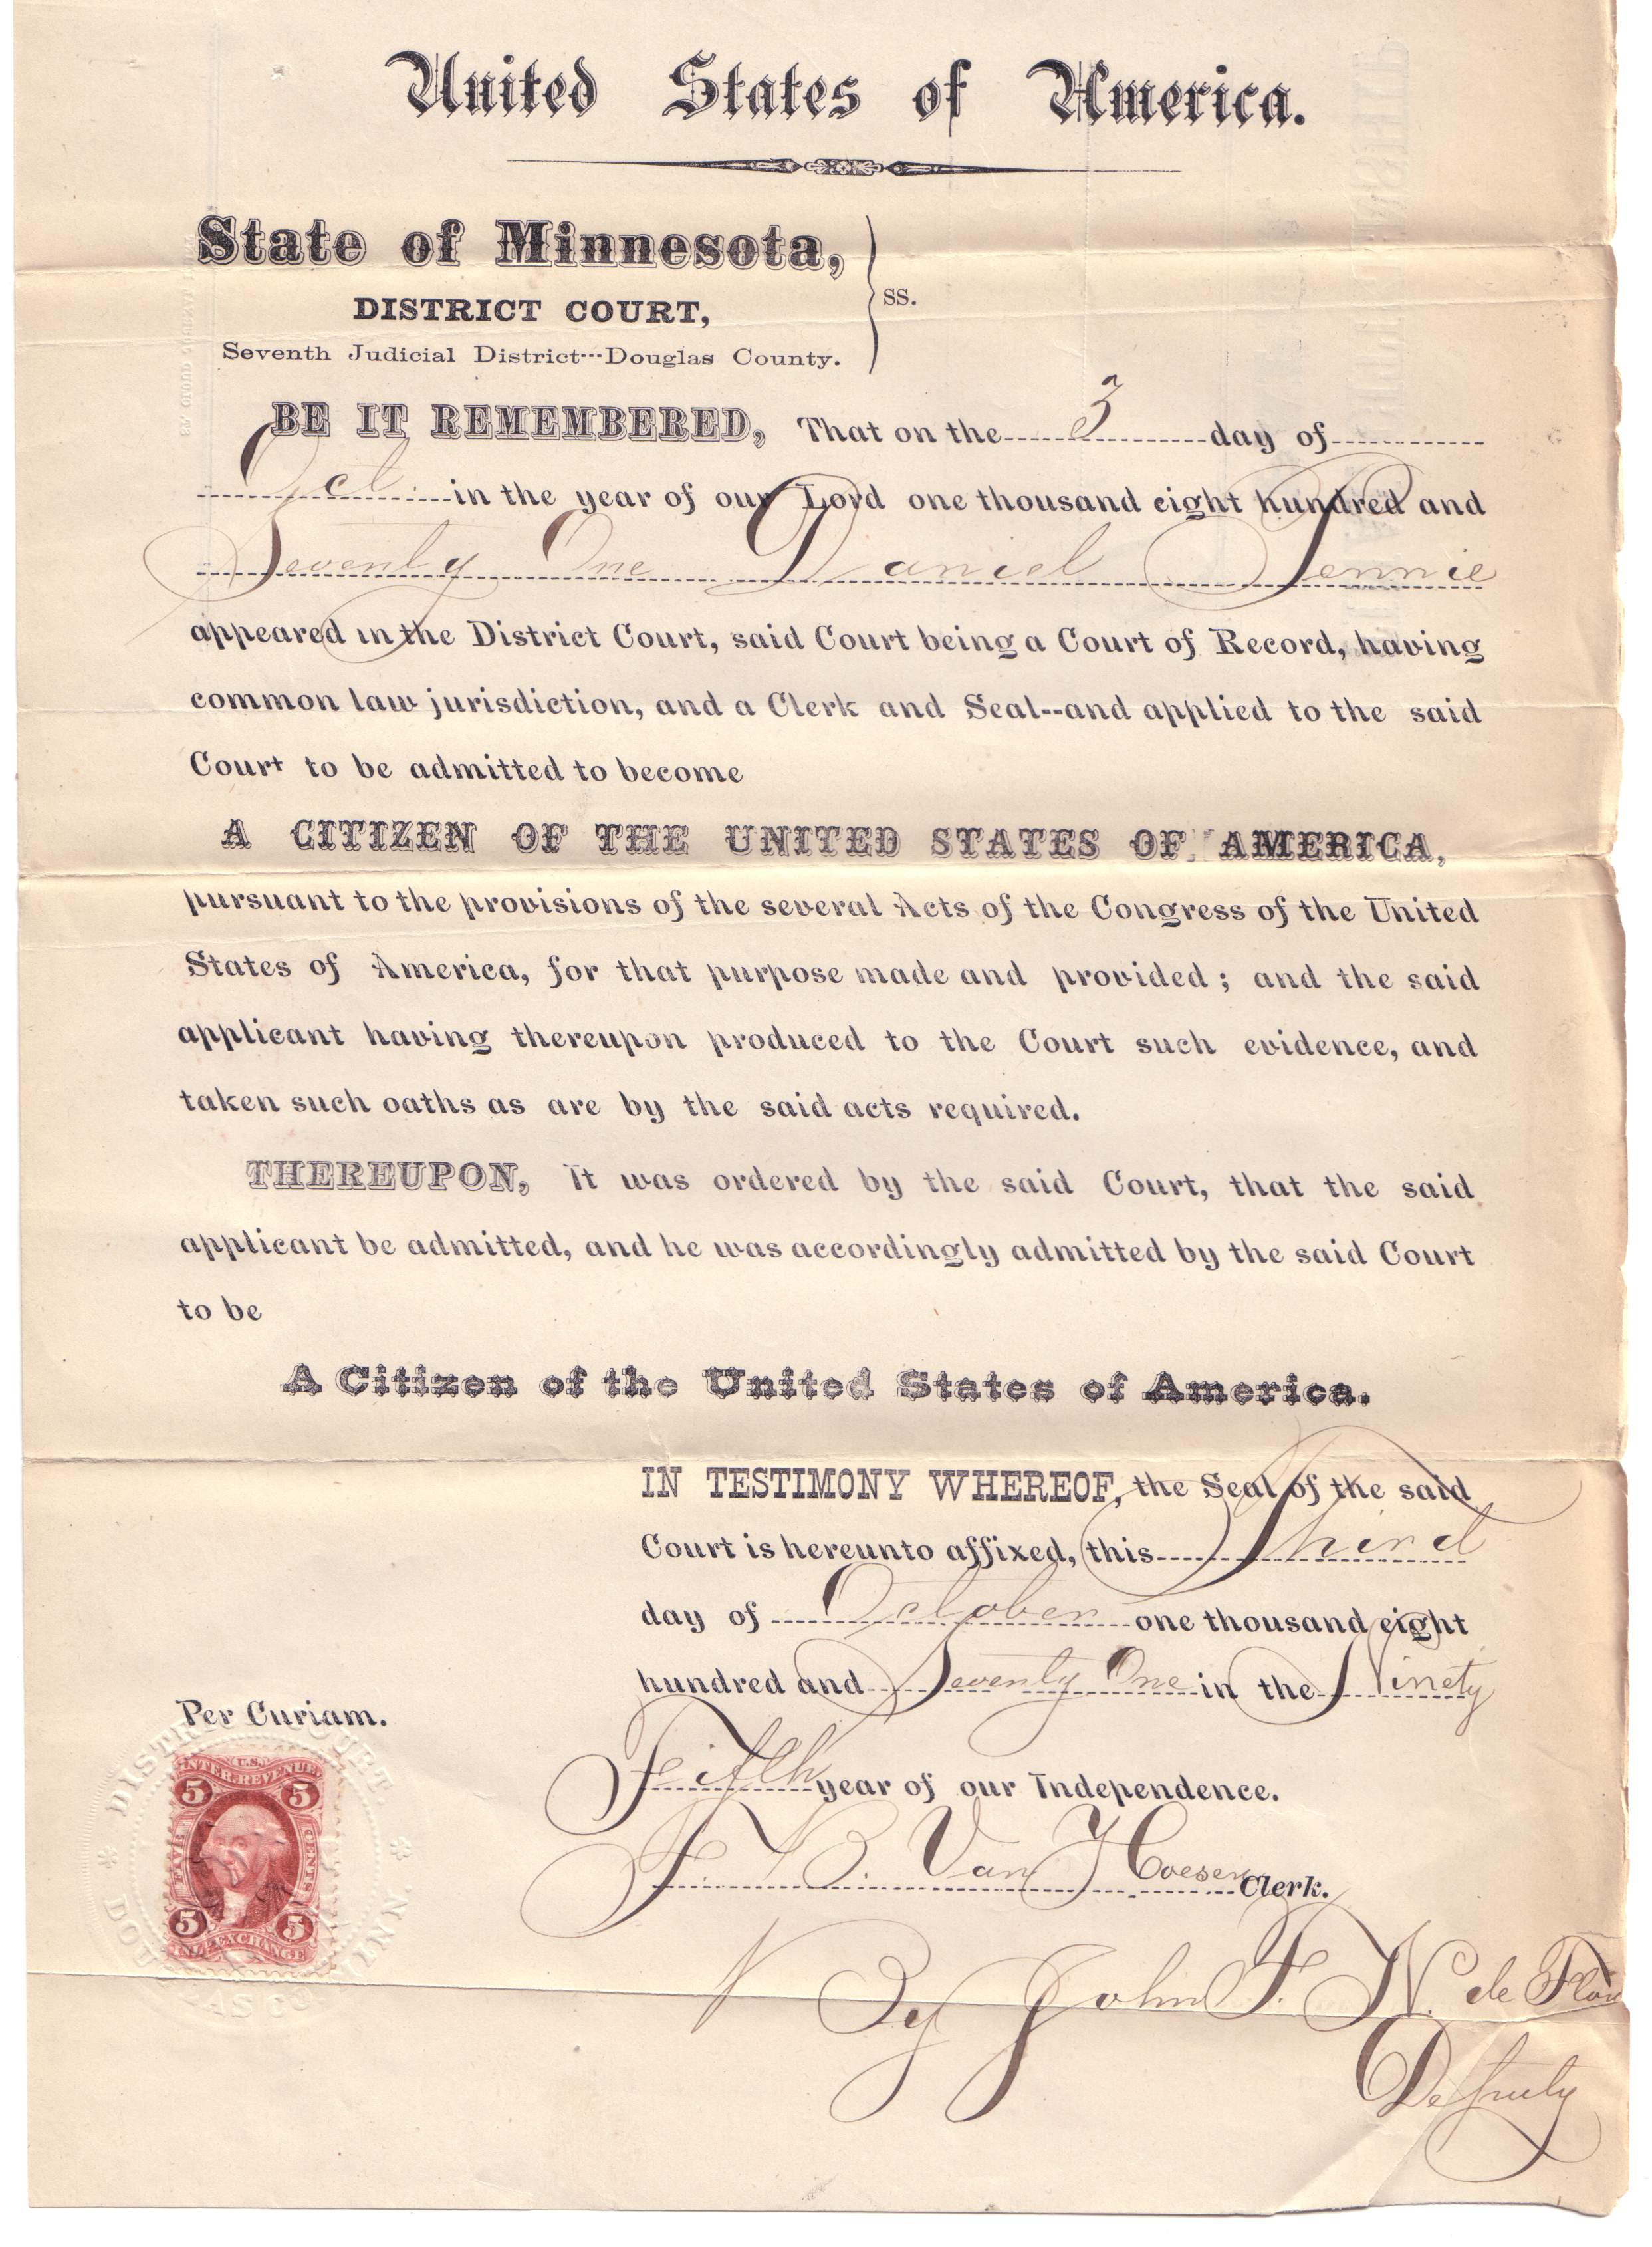 United States of America.
State of Minnesota,
DISTRICT COURT,
Seventh Judicial District---Douglas County.
ss.
BE IT REMEMBERED, That on the 3 day of
Oct in the year of our Lord one thousand eight hundred and
Seventy One Daniel
appeared in the District Court, said Court being a Court of Record, having
common law jurisdiction, and a Clerk and Seal--and applied to the said
Court to be admitted to become
A CITIZEN OF THE UNITED STATES OF AMERICA,
pursuant to the provisions of the several Acts of the Congress of the United
States of America, for that purpose made and provided; and the said
applicant having thereupon produced to the Court such evidence, and
taken such oaths as are by the said acts required.
THEREUPON, It was ordered by the said Court, that the said
applicant be admitted, and he was accordingly admitted by the said Court
to be
A Citizen of the United States of America.
IN TESTIMONY WHEREOF, the Seal of the said
Court is hereunto affixed, this Third
day of October one thousand eight
hundred and Seventy One in the Ninety
Fifth year of our Independence.
F. B. Van Hoesen Clerk.
By John F. N. de
Deputy
Per Curiam.
DISTRICT COURT
DOUGLAS CO MINN
U.S.
INTER. REVENUE
5 5
FIVE CENTS
5 5
EXCHANGE